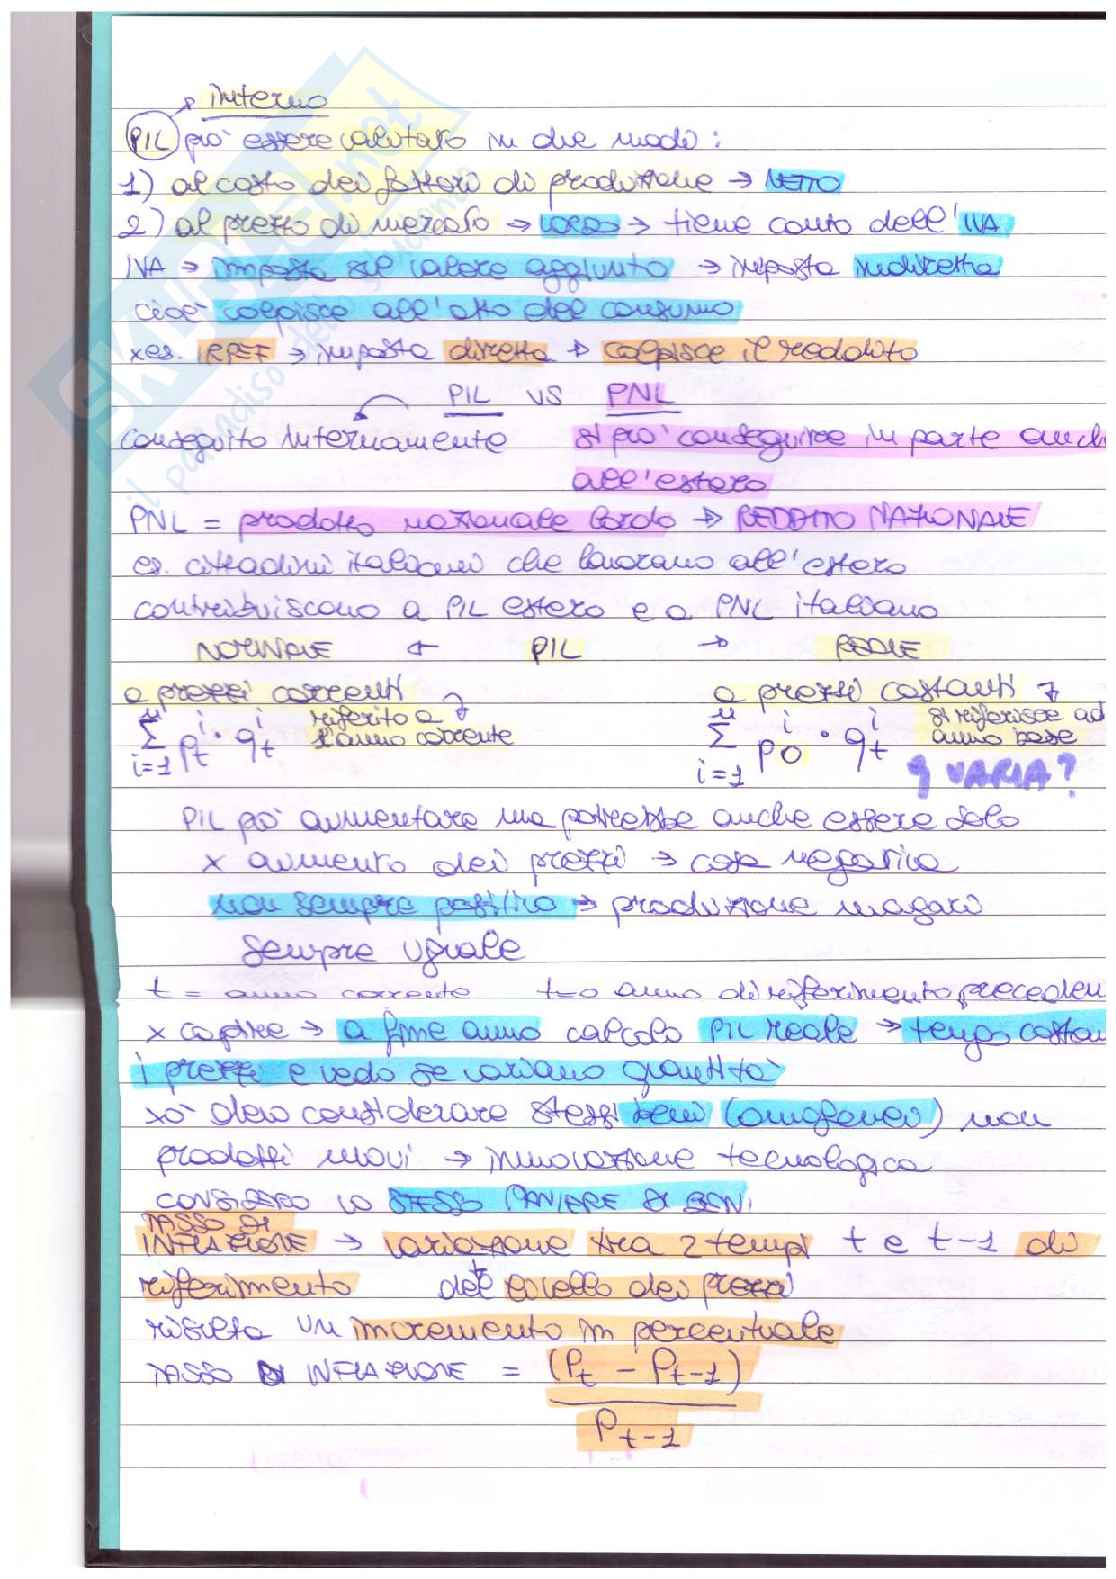 interno
PIL può essere valutato in due modi:
1) al costo dei fattori di produzione → NETTO
2) al prezzo di mercato → LORDO → tiene conto dell'IVA
IVA → imposta sul valore aggiunto → imposta indiretta
cioè colpisce all'atto del consumo
x es. IRPEF → imposta diretta → colpisce il reddito
PIL VS PNL
conseguito internamente si può conseguire in parte anch
all'estero
PNL = prodotto nazionale lordo → REDDITO NAZIONALE
es. cittadini italiani che lavorano all'estero
contribuiscono a PIL estero e a PNL italiano
NOMINALE ← PIL → REALE
a prezzi correnti a prezzi costanti
n i i riferito a n i i si riferisce ad
Σ pt · qt l'anno corrente Σ p0 · qt anno base
i=1 i=1 q VARIA?
PIL può aumentare ma potrebbe anche essere solo
x aumento dei prezzi → cosa negativa
non sempre positivo → produzione magari
sempre uguale
t = anno corrente t=0 anno di riferimento preceden
x capire → a fine anno calcolo PIL reale → tengo costan
i prezzi e vedo se variano quantità
xò devo considerare stessi beni (omogenei) non
prodotti nuovi → innovazione tecnologica
CONSIDERO LO STESSO PANIERE DI BENI
TASSO DI
INFLAZIONE → variazione tra 2 tempi t e t-1 di
riferimento del livello dei prezzi
risulta un incremento in percentuale
TASSO DI INFLAZIONE = (Pt - Pt-1)
Pt-1
SKUOLA.net
il paradiso dello studente